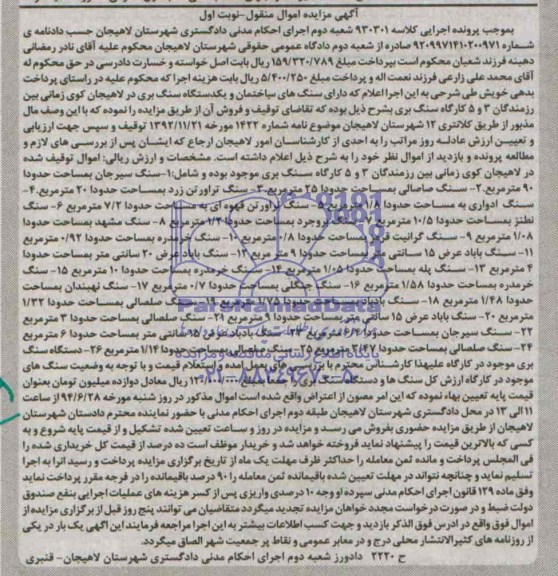 آگهی مزایده اموال منقول-نوبت اول
بموجب پرونده اجرایی کلاسه ۹۳۰۳۰۱ شعبه دوم اجرای احکام مدنی دادگستری شهرستان لاهیجان حسب دادنامه ی
شماره ۹۲۰۹۹۷۱۴۱۰۲۰۰۹۷۱ صادره از شعبه دوم دادگاه عمومی حقوقی شهرستان لاهیجان محکوم علیه آقای نادر رمضانی
دهینه فرزند شعبان محکوم است بپرداخت مبلغ ۱۵۹/۳۲۰/۷۸۹ ریال بابت اصل خواسته و خسارت دادرسی در حق محکوم له
آقای محمد علی زارعی فرزند نعمت اله و پرداخت مبلغ ۵/۴۰۰/۲۵۰ ریال بابت هزینه اجرا که محکوم علیه در راستای پرداخت
بدهی خویش طی شرحی به این اجرا اعلام که دارای سنگ های ساختمان و یکدستگاه سنگ بری در لاهیجان کوی زمانی بین
رزمندگان ۳ و ۵ کارگاه سنگ بری بشرح ذیل بوده که تقاضای توقیف و فروش آن از طریق مزایده را نموده که با این وصف مال
مذبور از طریق کلانتری ۱۲ شهرستان لاهیجان موضوع نامه شماره ۱۴۲۲ مورخه ۱۳۹۲/۱۱/۲۱ توقیف و سپس جهت ارزیابی
و تعیین ارزش عادله روز مراتب را به احدی از کارشناسان امور لاهیجان ارجاع که ایشان پس از بررسی های لازم و
مطالعه پرونده و بازدید از اموال نظر خود را به شرح ذیل اعلام داشته است. مشخصات و ارزش ریالی: اموال توقیف شده
در لاهیجان کوی زمانی بین رزمندگان ۳ و ۵ کارگاه سنگ بری موجود بوده و شامل:۱-سنگ سیرجان بمساحت حدودا
۹۰ مترمربع.۲- سنگ صاصالی بمساحت حدودا ۲۵ مترمربع.۳- سنگ تراورتن زرد بمساحت حدودا ۲۰ مترمربع.۴-
سنگ ادواری به مساحت حدودا ۱/۸ مترمربع ۵- سنگ تراورتن قهوه ای به مساحت حدودا ۷/۲ مترمربع ۶- سنگ
نطنز بمساحت حدودا ۱۰/۵ مترمربع ۷- سنگ بروجرد بمساحت حدودا ۱/۲ مترمربع ۸- سنگ مشهد بمساحت حدودا
۱/۰۸ مترمربع ۹- سنگ گرانیت بمساحت حدودا ۰/۸ مترمربع ۱۰- سنگ خرمدره بمساحت حدودا ۰/۹۲ مترمربع
۱۱- سنگ باباد عرض ۱۵ سانتی متر بمساحت حدودا ۹ مترمربع ۱۲- سنگ باباد عرض ۲۰ سانتی متر بمساحت حدودا
۴ مترمربع ۱۳- سنگ پله بمساحت حدودا ۱/۰۵ مترمربع ۱۴- سنگ خرمدره بمساحت حدودا ۱۰ مترمربع ۱۵- سنگ
خرمدره بمساحت حدودا ۱/۵۸ مترمربع ۱۶- سنگ جنگلی بمساحت حدودا ۰/۷ مترمربع ۱۷- سنگ نهبندان بمساحت
حدودا ۱/۴۸ مترمربع ۱۸- سنگ باباد بمساحت حدودا ۱/۷۵ مترمربع ۱۹- سنگ صلصالی بمساحت حدودا ۱/۳۲
مترمربع ۲۰- سنگ باباد عرض ۱۵ سانتی متر بمساحت حدودا ۹ مترمربع ۲۱- سنگ صلصالی بمساحت حدودا ۳ مترمربع
۲۲- سنگ سیرجان بمساحت حدودا ۶/۲ مترمربع ۲۳- سنگ باباد عرض ۱۵ سانتی متر بمساحت حدودا ۶ مترمربع
۲۴- سنگ صلصالی بمساحت حدودا ۳/۴۷ مترمربع ۲۵- سنگ صلصالی بمساحت حدودا ۱/۱۴ مترمربع ۲۶- دستگاه سنگ
بری موجود در کارگاه علیهذا کارشناس محترم با بررسی های بعمل آمده و استعلام قیمت و با توجه به وضعیت سنگ های
موجود در کارگاه ارزش کل سنگ ها و دستگاه ریال معادل دوازده میلیون تومان بعنوان
قیمت پایه تعیین بهاء نموده که این امر مصون از اعتراض واقع شده است اموال مذکور در روز شنبه مورخه ۹۴/۶/۲۸ از ساعت
۱۱ الی ۱۲ در محل دادگستری شهرستان لاهیجان طبقه دوم اجرای احکام مدنی با حضور نماینده محترم دادستان شهرستان
لاهیجان از طریق مزایده حضوری بفروش می رسد و مزایده در روز و ساعت تعیین شده تشکیل و از قیمت پایه شروع و به
کسی که بالاترین قیمت را پیشنهاد نماید فروخته خواهد شد و خریدار موظف است ده درصد از قیمت کل خریداری شده را
فی المجلس پرداخت و مانده ثمن معامله را حداکثر ظرف مهلت یک ماه از تاریخ برگزاری مزایده پرداخت و رسید انرا به اجرا
تسلیم نماید و چنانچه نتواند در مهلت تعیین شده باقیمانده ثمن معامله را ۹۰ درصد باقیمانده را در فرجه مقرر پرداخت نماید
وفق ماده ۱۲۹ قانون اجرای احکام مدنی سپرده او وجه ۱۰ درصدی واریزی پس از کسر هزینه های عملیات اجرایی بنفع صندوق
دولت ضبط و در صورت درخواست مجدد خواهان مزایده تجدید میگردد متقاضیان می توانند پنج روز قبل از برگزاری مزایده از
اموال فوق واقع در ادرس فوق الذکر بازدید و جهت کسب اطلاعات بیشتر به این اجرا مراجعه فرمایند این آگهی یک بار در یکی
از روزنامه های کثیرالانتشار محلی درج و در معابر عمومی و نقاط پر جمعیت شهر الصاق میگردد.
ح ۲۲۲۰ دادورز شعبه دوم اجرای احکام مدنی دادگستری شهرستان لاهیجان- قنبری
ParsNamadData
پایگاه اطلاع رسانی مناقصه و مزایده
۰۲۱-۸۸۳۴۹۶۷۰-۵